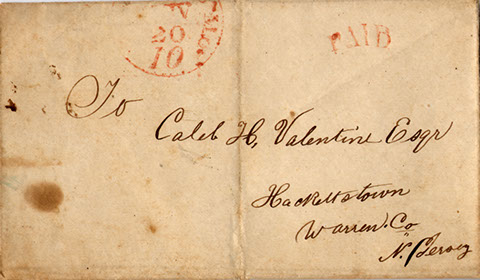 20
10
PAID
To
Caleb H, Valentine Esqr
Hackettstown
Warren. Co
N. Jersey